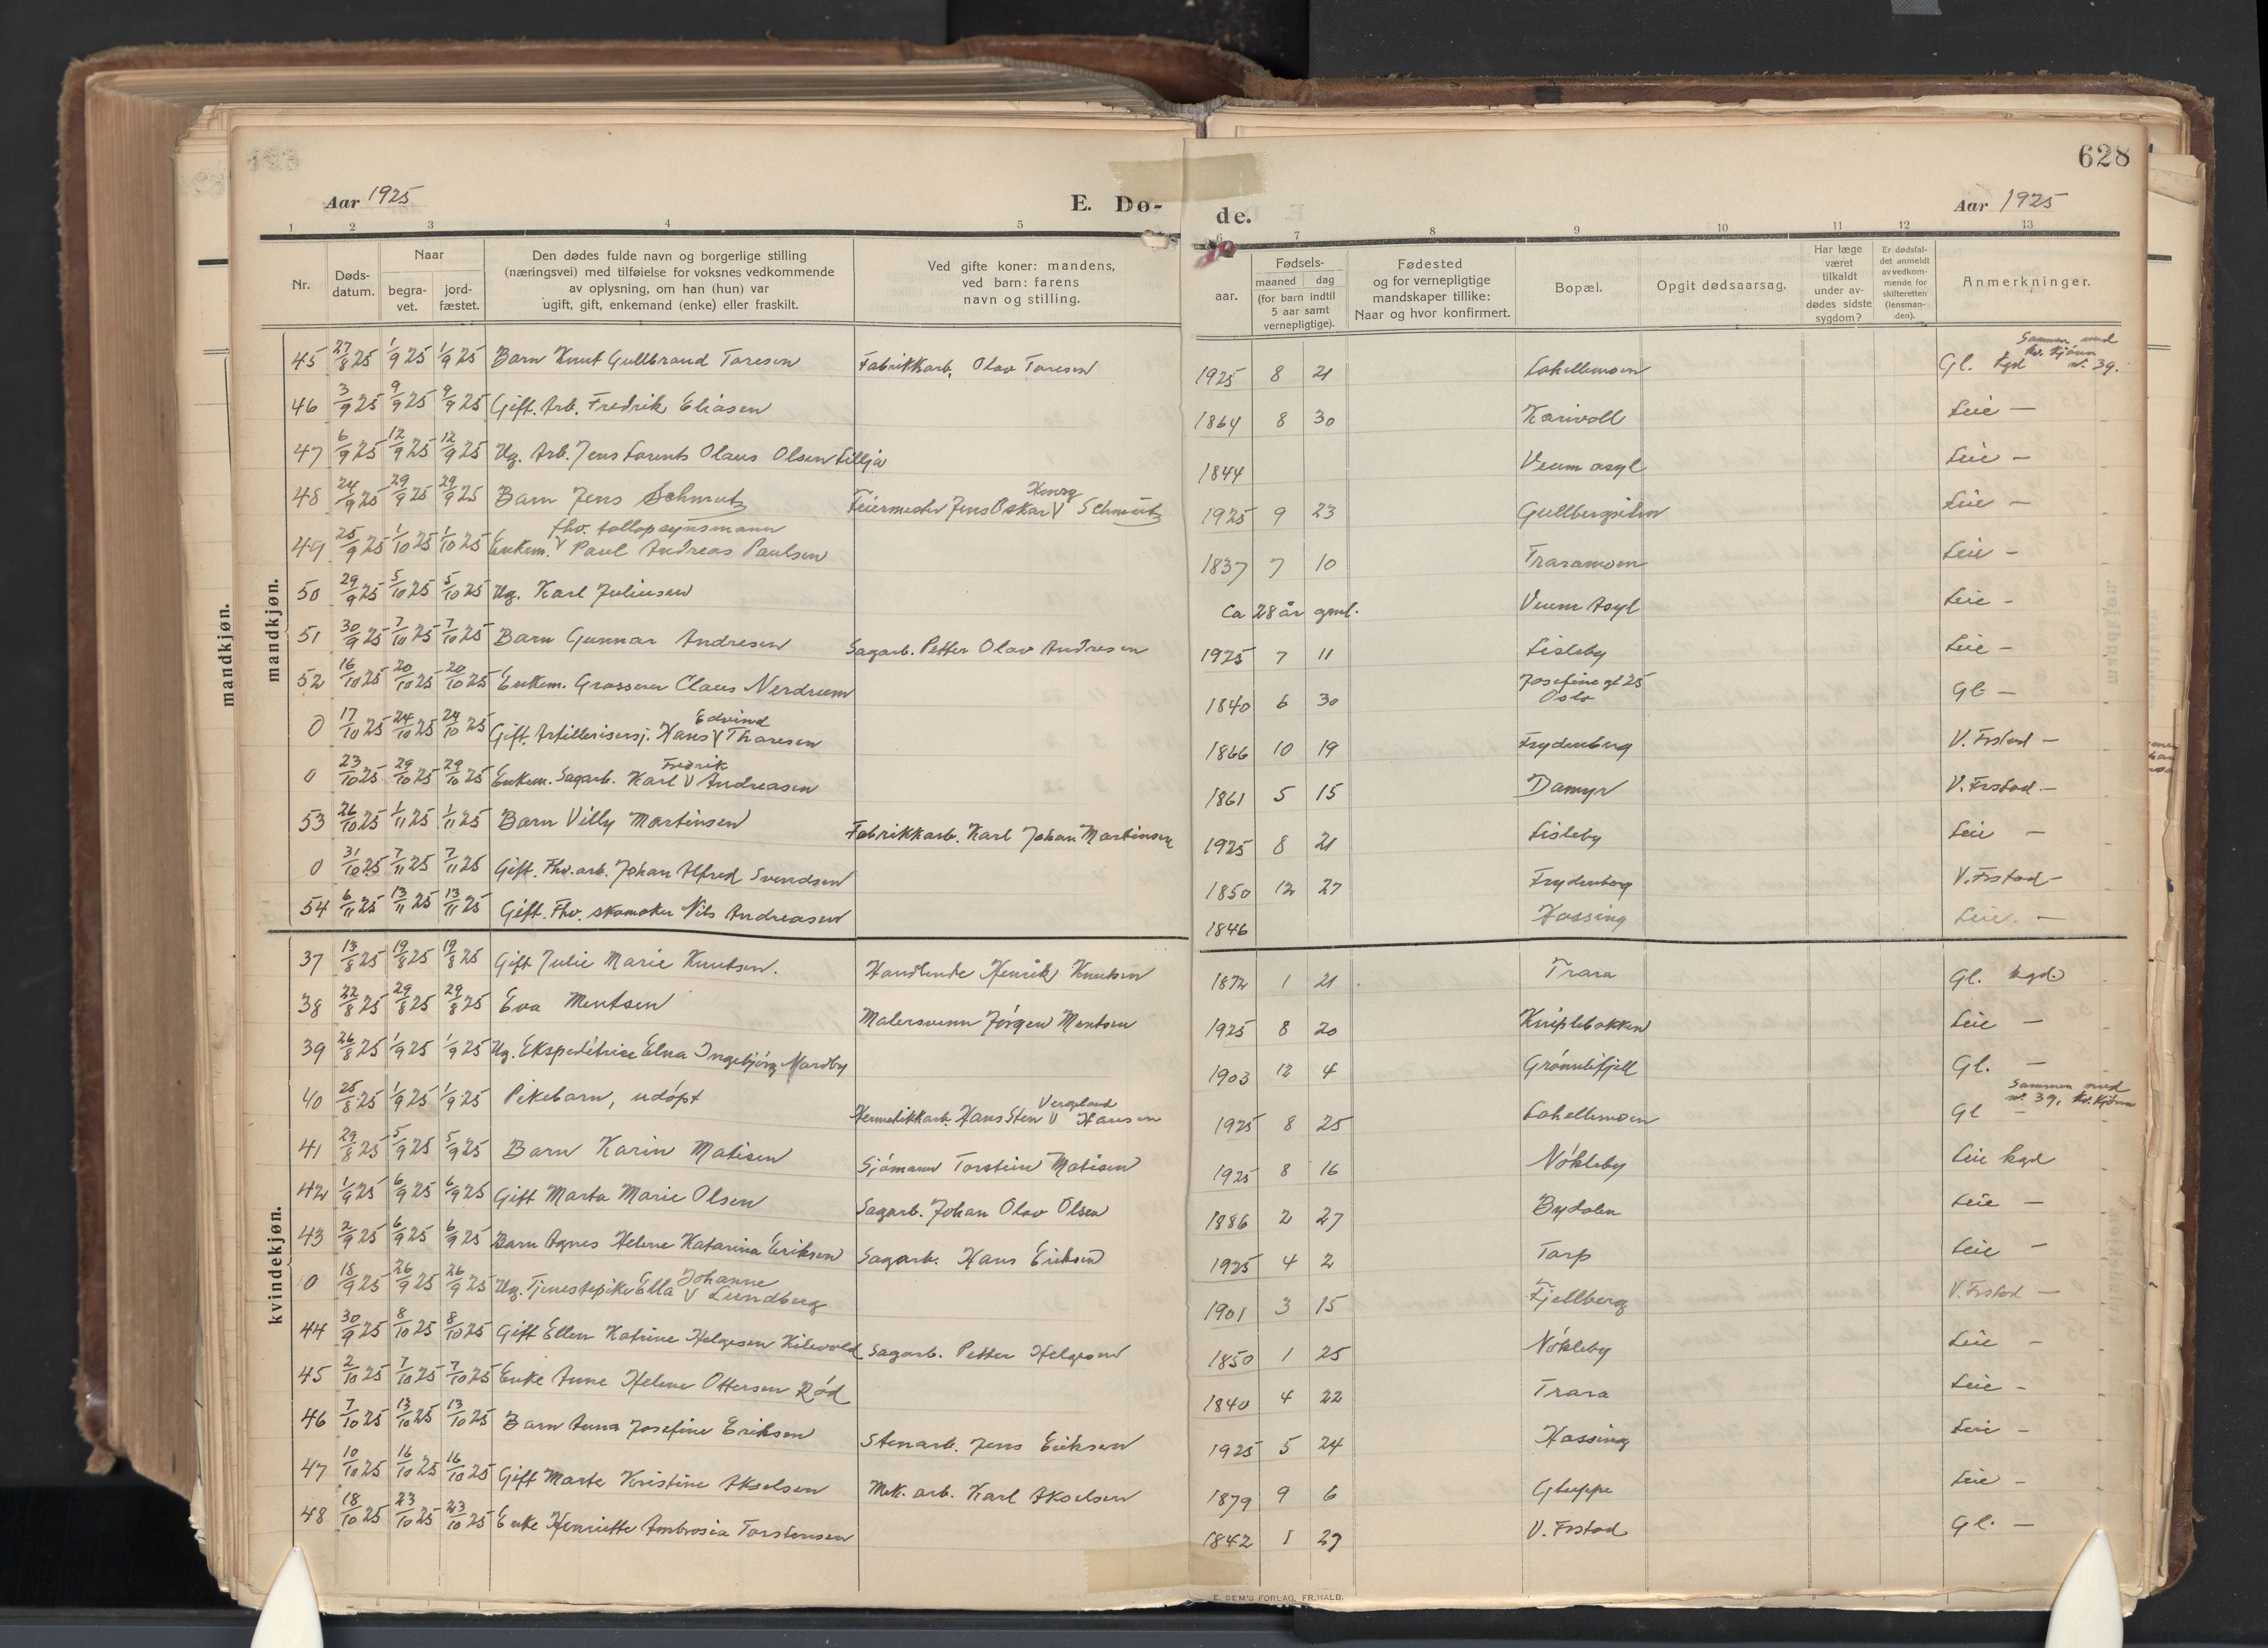 628
Aar 1925 E. Dø- de. Aar 1925
1 2 3 4 5 6 7 8 9 10 11 12 13
Nr. Døds-datum. Naar begra-vet. jord-fæstet. Den dødes fulde navn og borgerlige stilling (næringsvei) med tilføielse for voksnes vedkommende av oplysning, om han (hun) var ugift, gift, enkemand (enke) eller fraskilt. Ved gifte koner: mandens, ved barn: farens navn og stilling. Fødsels- aar. maaned dag (for barn indtil 5 aar samt vernepligtige). Fødested og for vernepligtige mandskaper tillike: Naar og hvor konfirmert. Bopæl. Opgit dødsaarsag. Har læge været tilkaldt under av-dødes sidste sygdom? Er dødsfal-det anmeldt av vedkom-mende for skifteretten (lensman-den). Anmerkninger.
mandkjøn.
mandkjøn.
45 27/8 25 1/9 25 1/9 25 Barn Knut Gullbrand Toresen Fabrikkarb. Olav Toresen 1925 8 21 Lahellemoen Gl. kgd Sammen med kv. kjønn nr. 39.
46 3/9 25 9/9 25 9/9 25 Gift. Arb. Fredrik Eliasen 1864 8 30 Karivoll Leie —
47 6/9 25 12/9 25 12/9 25 Ug. Arb. Jens Lorents Olaus Olsen Lillja 1844 Veum asyl Leie —
48 24/9 25 29/9 25 29/9 25 Barn Jens Schmutz Feiermester Jens Oskar V Schmutz 1925 9 23 Leie —
49 25/9 25 1/10 25 1/10 25 Enkem. V fhv. tollopsynsmann Paul Andreas Paulsen 1837 7 10 Traramoen Leie —
50 29/9 25 5/10 25 5/10 25 Ug. Karl Juliusen Ca 28 år gml. Veum Asyl Leie —
51 30/9 25 7/10 25 7/10 25 Barn Gunnar Andresen Sagarb. Petter Olav Andresen 1925 7 11 Lisleby Leie —
52 16/10 25 20/10 25 20/10 25 Enkem. Grosserer Claus Nerdrum 1840 6 30 Josefine gt 25 Oslo Gl —
0 17/10 25 24/10 25 24/10 25 Gift. Artillerisersj. Hans V Edvind Thoresen 1866 10 19 Frydenberg V. Frstad —
0 23/10 25 29/10 25 29/10 25 Enkem. Sagarb. Karl V Fredrik Andreasen 1861 5 15 Damyr V. Frstad —
53 26/10 25 1/11 25 1/11 25 Barn Villy Martinsen Fabrikkarb. Karl Johan Martinsen 1925 8 21 Lisleby Leie —
0 31/10 25 7/11 25 7/11 25 Gift. Fhv. arb. Johan Alfred Svendsen 1850 12 27 Frydenberg V. Frstad —
54 6/11 25 13/11 25 13/11 25 Gift. Fhv. skomaker Nils Andreasen 1846 Hassing Leie. —
kvindekjøn.
37 13/8 25 19/8 25 19/8 25 Gift Julie Marie Knutsen. Handlende Henrik Knutsen 1872 1 21 Trara Gl. kgd.
38 22/8 25 29/8 25 29/8 25 Eva Mentsen Malersvenn Jørgen Mentsen 1925 8 20 Kniplebakken Leie —
39 26/8 25 1/9 25 1/9 25 Ug. Ekspeditrise Elna Ingebjørg Mardby 1903 12 4 Grønnlifjell Gl. —
40 25/8 25 1/9 25 1/9 25 Pikebarn, udøpt Hermetikkarb. Hans Sten V Vergeland Hansen 1925 8 25 Lahellemoen Gl — Sammen med nr. 39, kv. kjønn
41 29/8 25 5/9 25 5/9 25 Barn Karin Matisen Sjømann Torstein Matisen 1925 8 16 Nøkleby Leie kgd
42 1/9 25 6/9 25 6/9 25 Gift Marta Marie Olsen Sagarb. Johan Olav Olsen 1886 2 27 Bydalen Leie —
43 2/9 25 6/9 25 6/9 25 Barn Agnes Helene Katarina Eriksen Sagarb. Hans Eriksen 1925 4 2 Torp Leie —
0 18/9 25 26/9 25 26/9 25 Ug. Tjenestepike Ella V Johanne Lundberg 1901 3 15 Fjellberg V. Frstad —
44 30/9 25 8/10 25 8/10 25 Gift Ellen Katrine Helgesen Kilevold Sagarb. Petter Helgesen 1850 1 25 Nøkleby Leie —
45 2/10 25 7/10 25 7/10 25 Enke Anne Helene Ottersen Rød 1840 4 22 Trara Leie —
46 7/10 25 13/10 25 13/10 25 Barn Anna Josefine Eriksen Stenarb. Jens Eriksen 1925 5 24 Hassing Leie —
47 10/10 25 16/10 25 16/10 25 Gift Marte Kristine Akselsen Mek. arb. Karl Akselsen 1879 9 6 Gluppe Leie —
48 18/10 25 23/10 25 23/10 25 Enke Henriette Ambrosia Torstensen 1842 1 27 V. Frstad Gl. —
E. SEM'S FORLAG, FR.HALD.